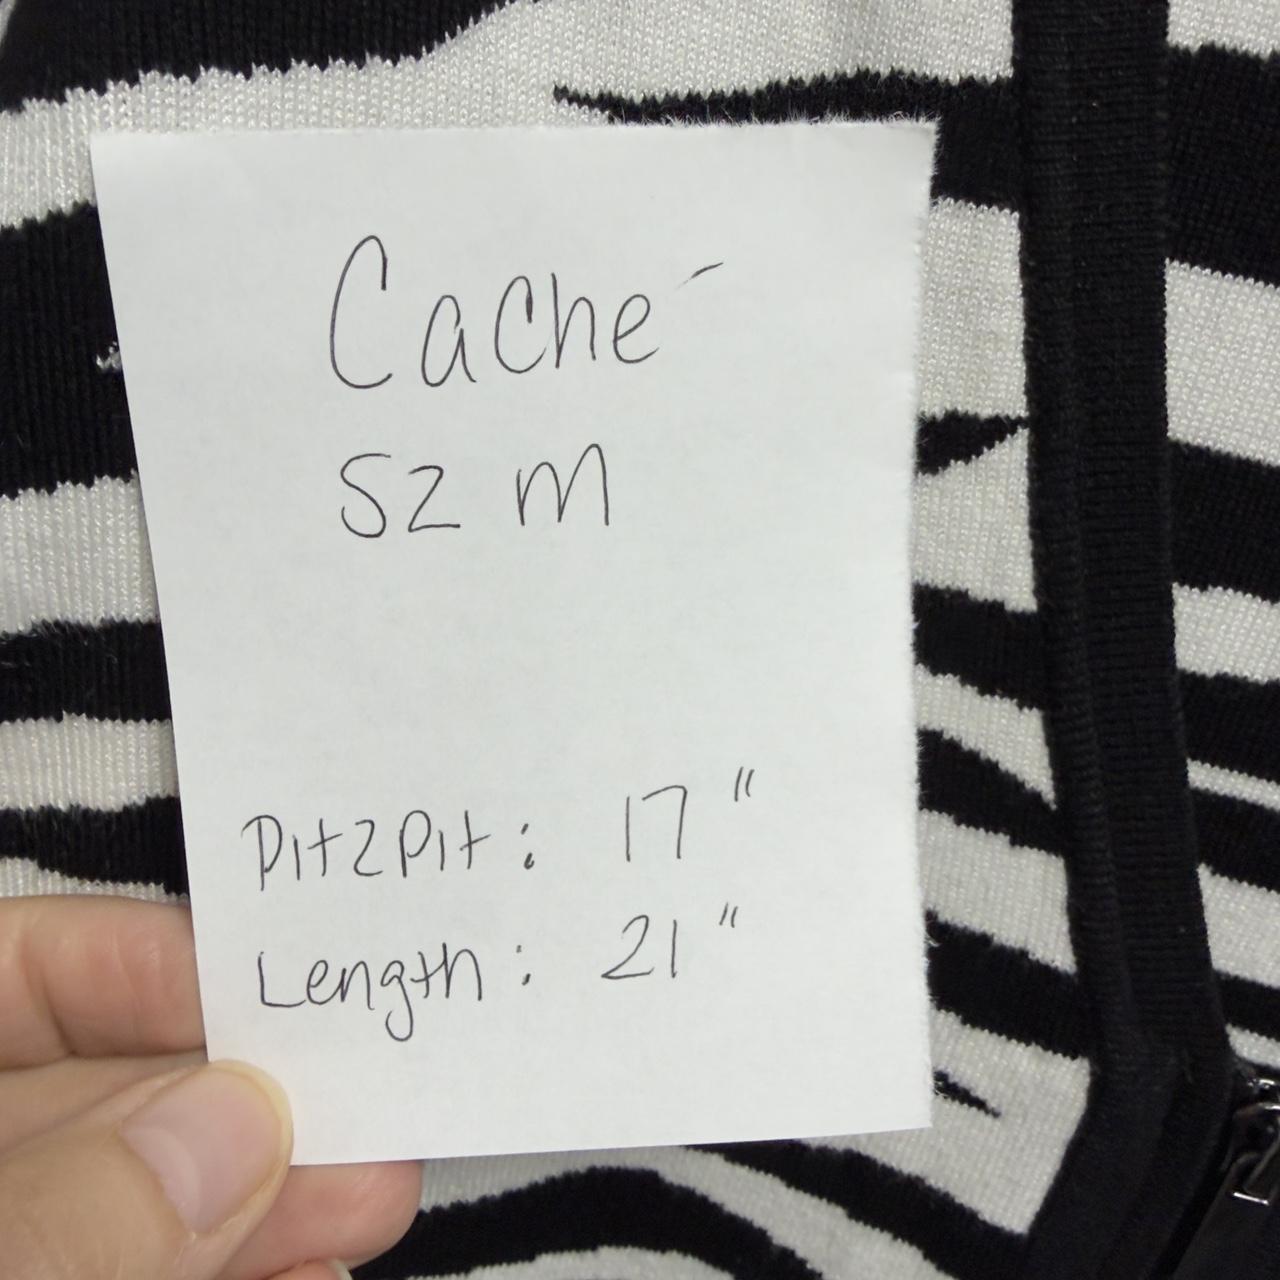 Caché
SZ M
Pit2Pit: 17"
Length: 21"